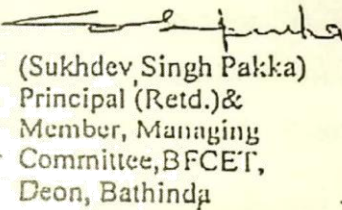 (Sukhdev Singh Pakka)
Principal (Retd.)&
Member, Managing
Committee,BFCET,
Deon, Bathinda